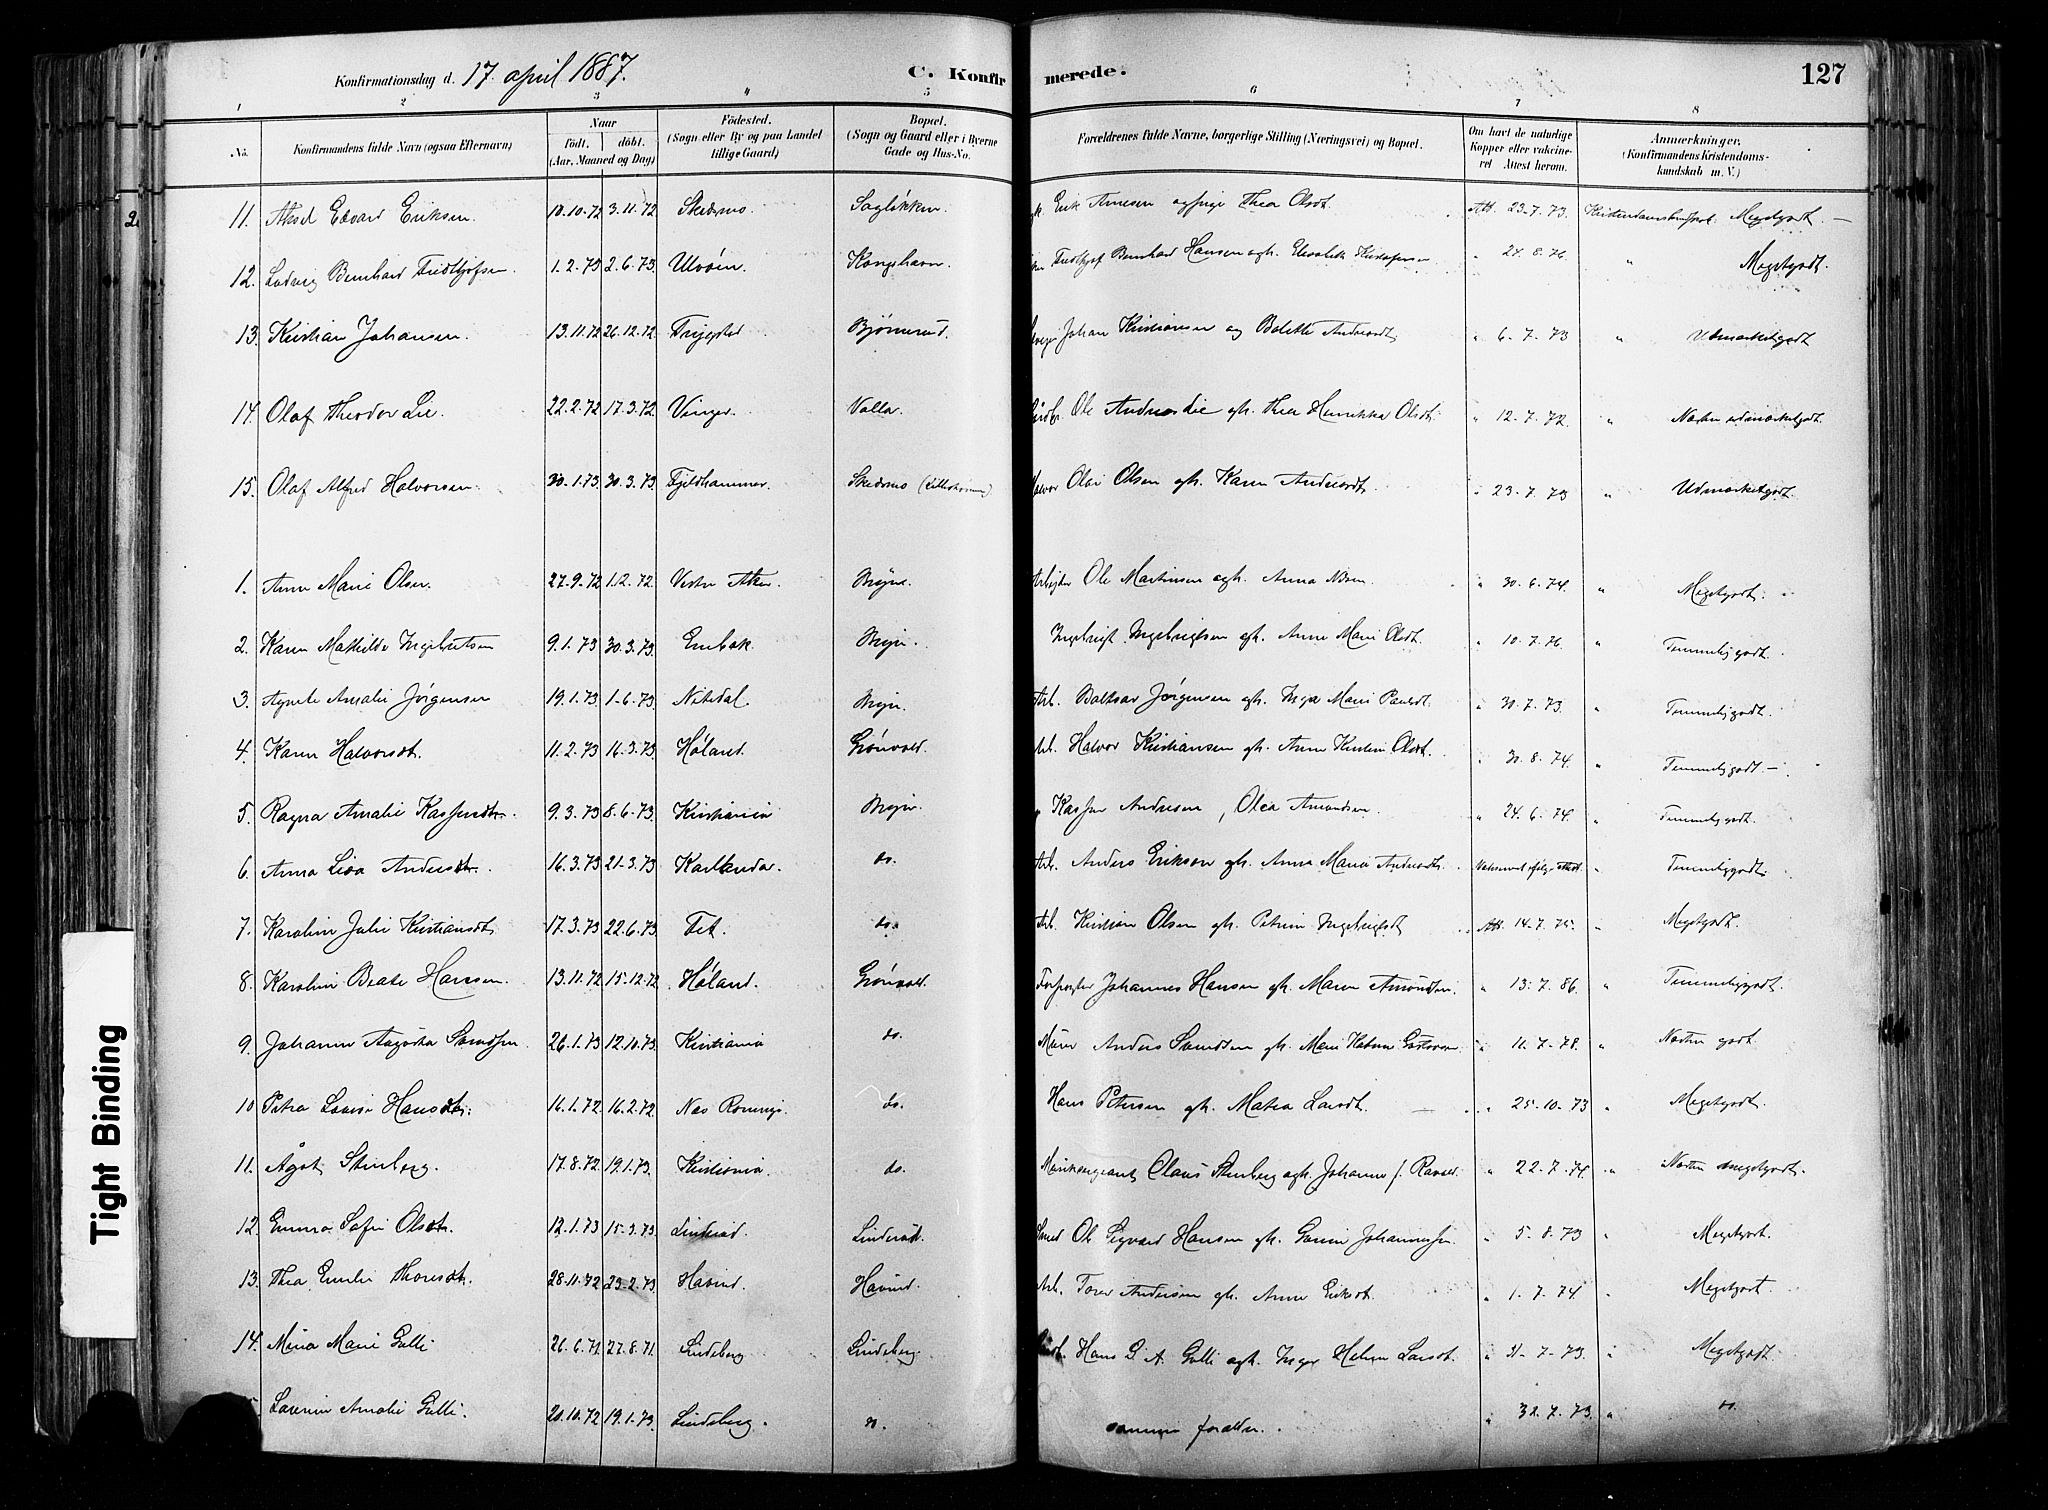 Konfirmationsdag d. 17. april 1887. C. Konfirmerede. 127
1 2 3 4 5 6 7 8
No. Konfirmandens fulde Navn (ogsaa Efternavn) Naar født. døbt. (Aar, Maaned og Dag) Födested. (Sogn eller By og paa Landet tillige Gaard) Bopæl. (Sogn og Gaard eller i Byerne Gade og Hus-No. Forældrenes fulde Navne, borgerlige Stilling (Næringsvei) og Bopæl. Om havt de naturlige Kopper eller vaccineret Attest herom. Anmærkninger. (Konfirmandens Kristendomskundskab m. V.)
2
11. Aksel Edvard Eriksen 10.10.72 3.11.72 Skedsmo Sagløkken Erik Arnesen og Thea Olsdt. Att. 23.7.73. Megetgodt.
12. Ludvig Bernhard Fridthjofsen 1.2.73 2.6.73. Ulvøen Kongshavn Fridthjof Bernhard Hansen ogh. " 24.8.76 " Megetgodt.
13. Kristian Johansen. 13.11.72 26.12.72 Trygstad Bjørnerud. Johan Kristiansen og Bolette Andersdt " 6.7.73 " Udmærketgodt
14. Olaf Theodor Lie 22.2.72 17.3.72. Vinger. Valla. Ole Andreas Lie gh. Thea Henrikka Olsdt. " 12.7.72. " Næsten udmærketgodt.
15. Olaf Alfred Halvorsen. 30.1.73 30.3.73 Fjeldhammer. Skedsmo Olai Olsen gh. Karen Andersdt. " 23.7.73 " Udmærketgodt.
1. Anne Marie Olsen. 27.9.72 1.12.72. Vestre Aker Bryn. Arbejder Ole Martinsen ogh. Anna " 30.6.74. " Megetgodt.
2. Karen Mathilde Ingebretsen 9.1.73 30.3.73. Enebak Bryn. Ingebrigt Ingebrigtsen gh. Anne Marie Olsdt. " 10.7.76. " Temmeliggodt.
3. Agnete Amalie Jørgensen 19.1.73 1.6.73. Nitedal. Bryn. Arb. Baltsar Jørgensen gh. Inga Marie Paulsdt. " 30.7.73. " Temmeliggodt.
4. Karen Halvorsdt. 11.2.73 16.3.73 Høland. Grønvold. Arb. Halvor Kristiansen gh. Anne Kirstine Olsdt. " 30.8.74. " Temmeliggodt.
5. Ragna Amalie 9.3.73 8.6.73. Kristiania Bryn. Andersen, Olea Amundsen. " 24.6.74. " Temmeliggodt.
6. Anna Lisa Andersdt. 16.3.73 21.3.73 Karlanda. do. Arb. Anders Erikson gh. Anna Maria Andersdt. " Temmeliggodt.
7. Karoline Julie Kristiansdt. 17.3.73 22.6.73. Fet. do. Arb. Kristian Olsen gh. Petrine Ingebrigtsdt Att. 14.7.75. " Megetgodt.
8. Karoline Beate Hansen. 13.11.72 15.12.72 Høland. Grønvold. Johannes Hansen gh. Maren Amundsen. " 13.7.86. " Temmeliggodt.
9. Johanne Augusta 26.1.73 12.10.73. Kristiania do. Murer Anders gh. Marie " 11.7.78. " Næsten godt.
10 Petra Lovise Hansdt. 16.1.72 16.2.72 Nes Romerige. do. Hans Petersen gh. Matea Larsdt. " 25.10.73 " Megetgodt.
11. Ågot Stenberg. 17.8.72 19.1.73. Kristiania. do. Claus Stenberg ogh. Johanne f. " 22.7.74. " Næsten megetgodt.
12. Emma Sofie Olsdt. 12.1.73 15.3.73. Linderud. Linderud. Smed Ole Sigvard Hansen gh. " 5.8.73 " Megetgodt.
13. Thea Emilie Thoresdt. 28.11.72 23.2.73. Havind. Havind. Arb. Tore Andersen gh. Anne Eriksdt. " 1.7.74. " Megetgodt.
14. Mina Marie Gulli 26.6.71. 27.8.71. Lindeberg Lindeberg. Hans G. A. Gulli ogh. Inger Helene Larsdt. " 31.7.73. " Megetgodt.
Amalie Gulli. 20.10.72 19.1.73. Lindeberg. do. samme forældre. " 31.7.73. " do.
Tight Binding